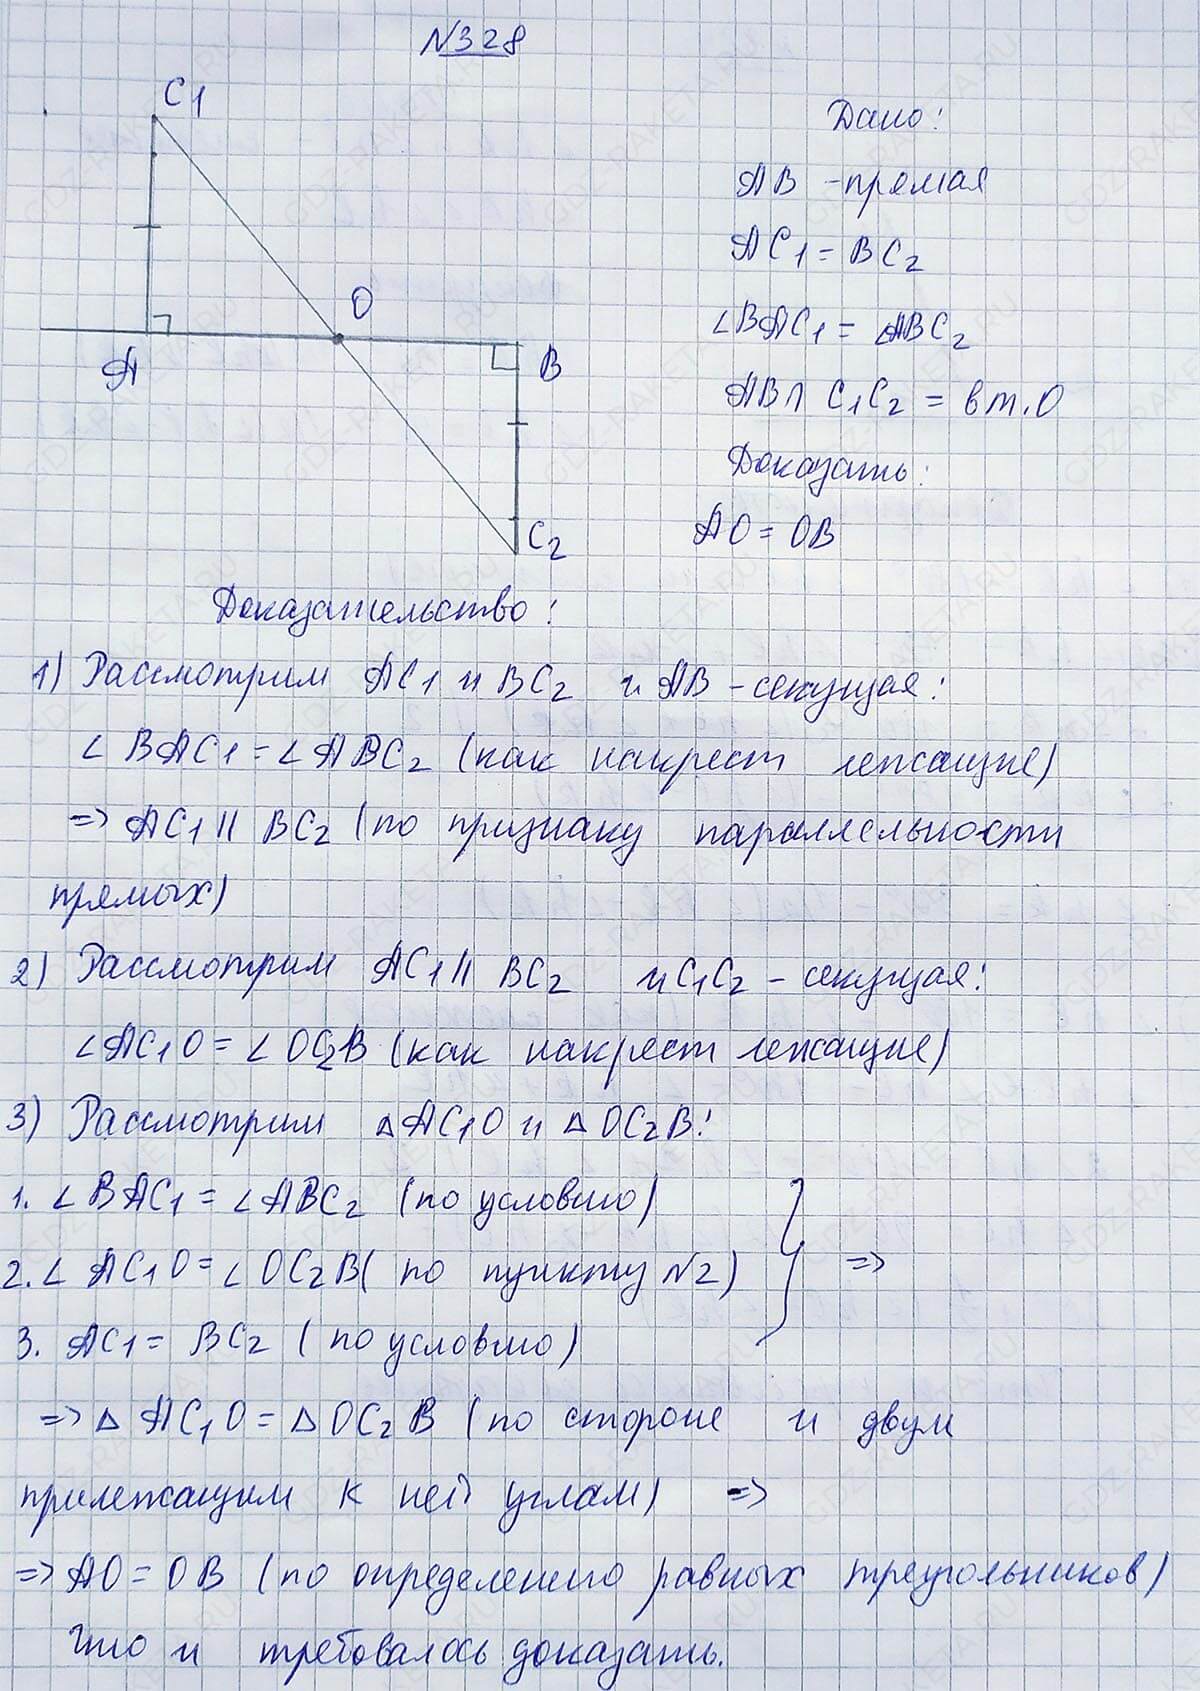 №328
C1
O
A
B
C2
Дано:
AB - прямая
AC1 = BC2
∠BAC1 = ∠ABC2
AB∩ C1C2 = в т.O
Доказать:
AO = OB
Доказательство:
1) Рассмотрим AC1 и BC2 и AB - секущая:
∠BAC1 = ∠ABC2 (как накрест лежащие)
=> AC1 || BC2 (по признаку параллельности
прямых)
2) Рассмотрим AC1 || BC2 и C1C2 - секущая:
∠AC1O = ∠OC2B (как накрест лежащие)
3) Рассмотрим △AC1O и △OC2B:
1. ∠BAC1 = ∠ABC2 (по условию)
2. ∠AC1O = ∠OC2B (по пункту №2) =>
3. AC1 = BC2 (по условию)
=> △AC1O = △OC2B (по стороне и двум
прилежащим к ней углам) =>
=> AO = OB (по определению равных треугольников)
Что и требовалось доказать.
GDZ-RAKETA.RU